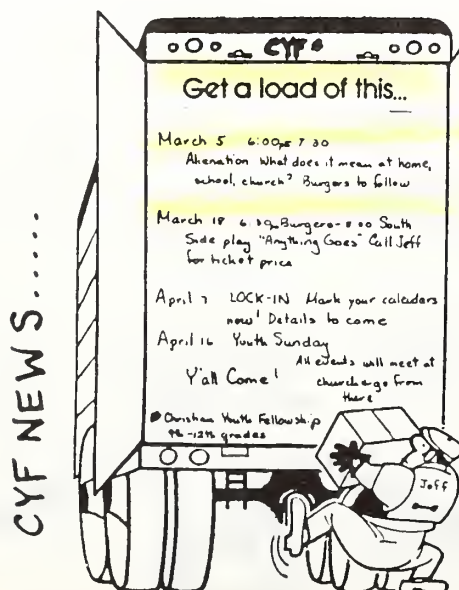 CYF NEWS......
CYF
Get a load of this...
March 5 6:00 7:30
Alienation What does it mean at home,
school, church? Burgers to follow
March 18 Burgers- South
Side play "Anything Goes" Call Jeff
for ticket price
April 7 LOCK-IN Mark your calendars
now! Details to come
April 16 Youth Sunday
All events will meet at
Y'all Come!
church & go from
there
Christian Youth Fellowship
9th-12th grades
Jeff